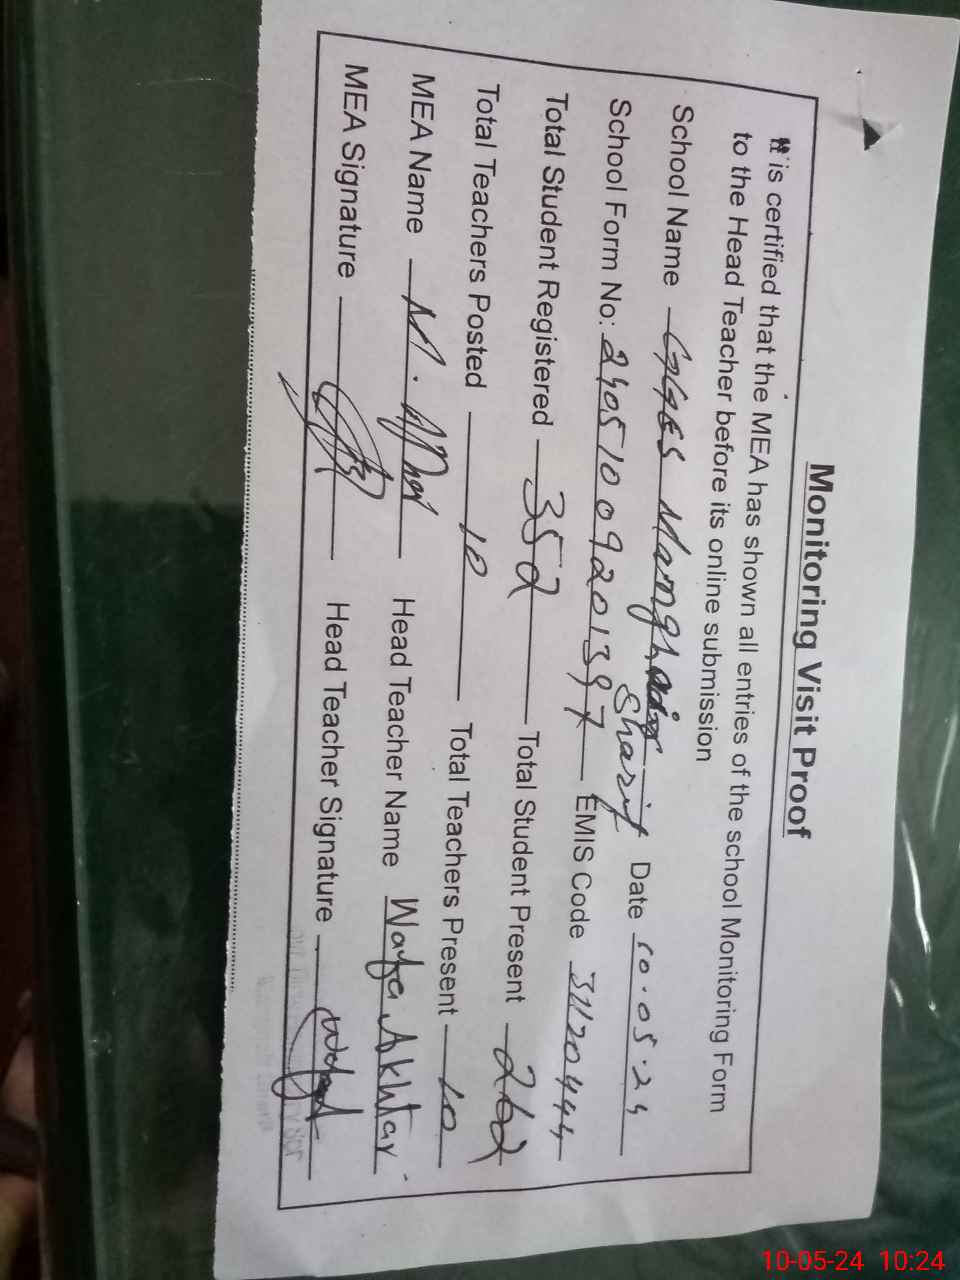 Monitoring Visit Proof
It is certified that the MEA has shown all entries of the school Monitoring Form
to the Head Teacher before its online submission
School Name GGES Manghair Sharif Date 10.05.24
School Form No: 24051009201397 EMIS Code 31120444
Total Student Registered 352 Total Student Present 262
Total Teachers Posted 10 Total Teachers Present 10
MEA Name M. Head Teacher Name Wafa Akhtar
MEA Signature Head Teacher Signature
10-05-24 10:24